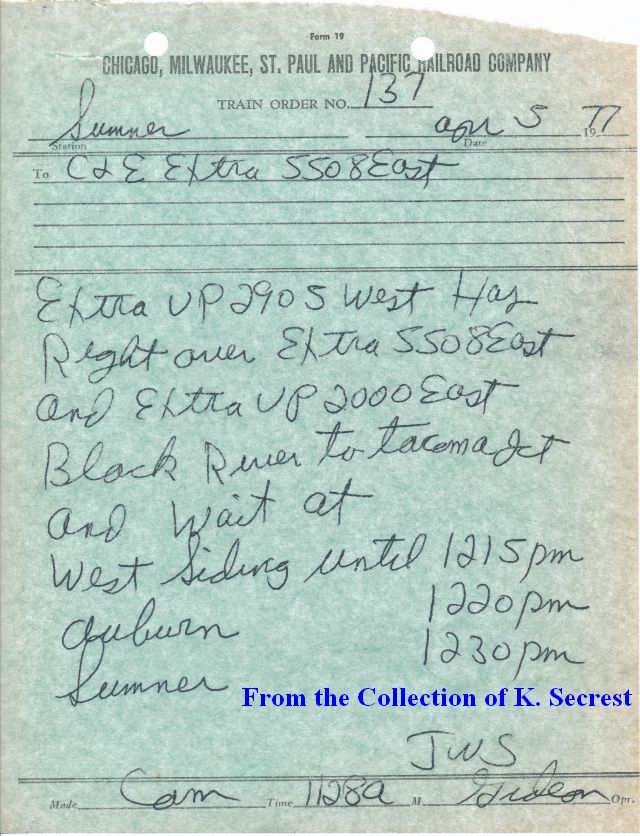 Form 19
CHICAGO, MILWAUKEE, ST. PAUL AND PACIFIC RAILROAD COMPANY
TRAIN ORDER NO. 137
Sumner Apr 5 1977
Station Date
To C&E Extra 5508 East
Extra UP 2905 West Has
Right over Extra 5508 East
and Extra UP 2000 East
Black River to Tacoma Jct
and Wait at
West Siding until 1215pm
Auburn 1220pm
Sumner 1230pm
From the Collection of K. Secrest
JWS
Made Com Time 1128a M. Gideon Opr.